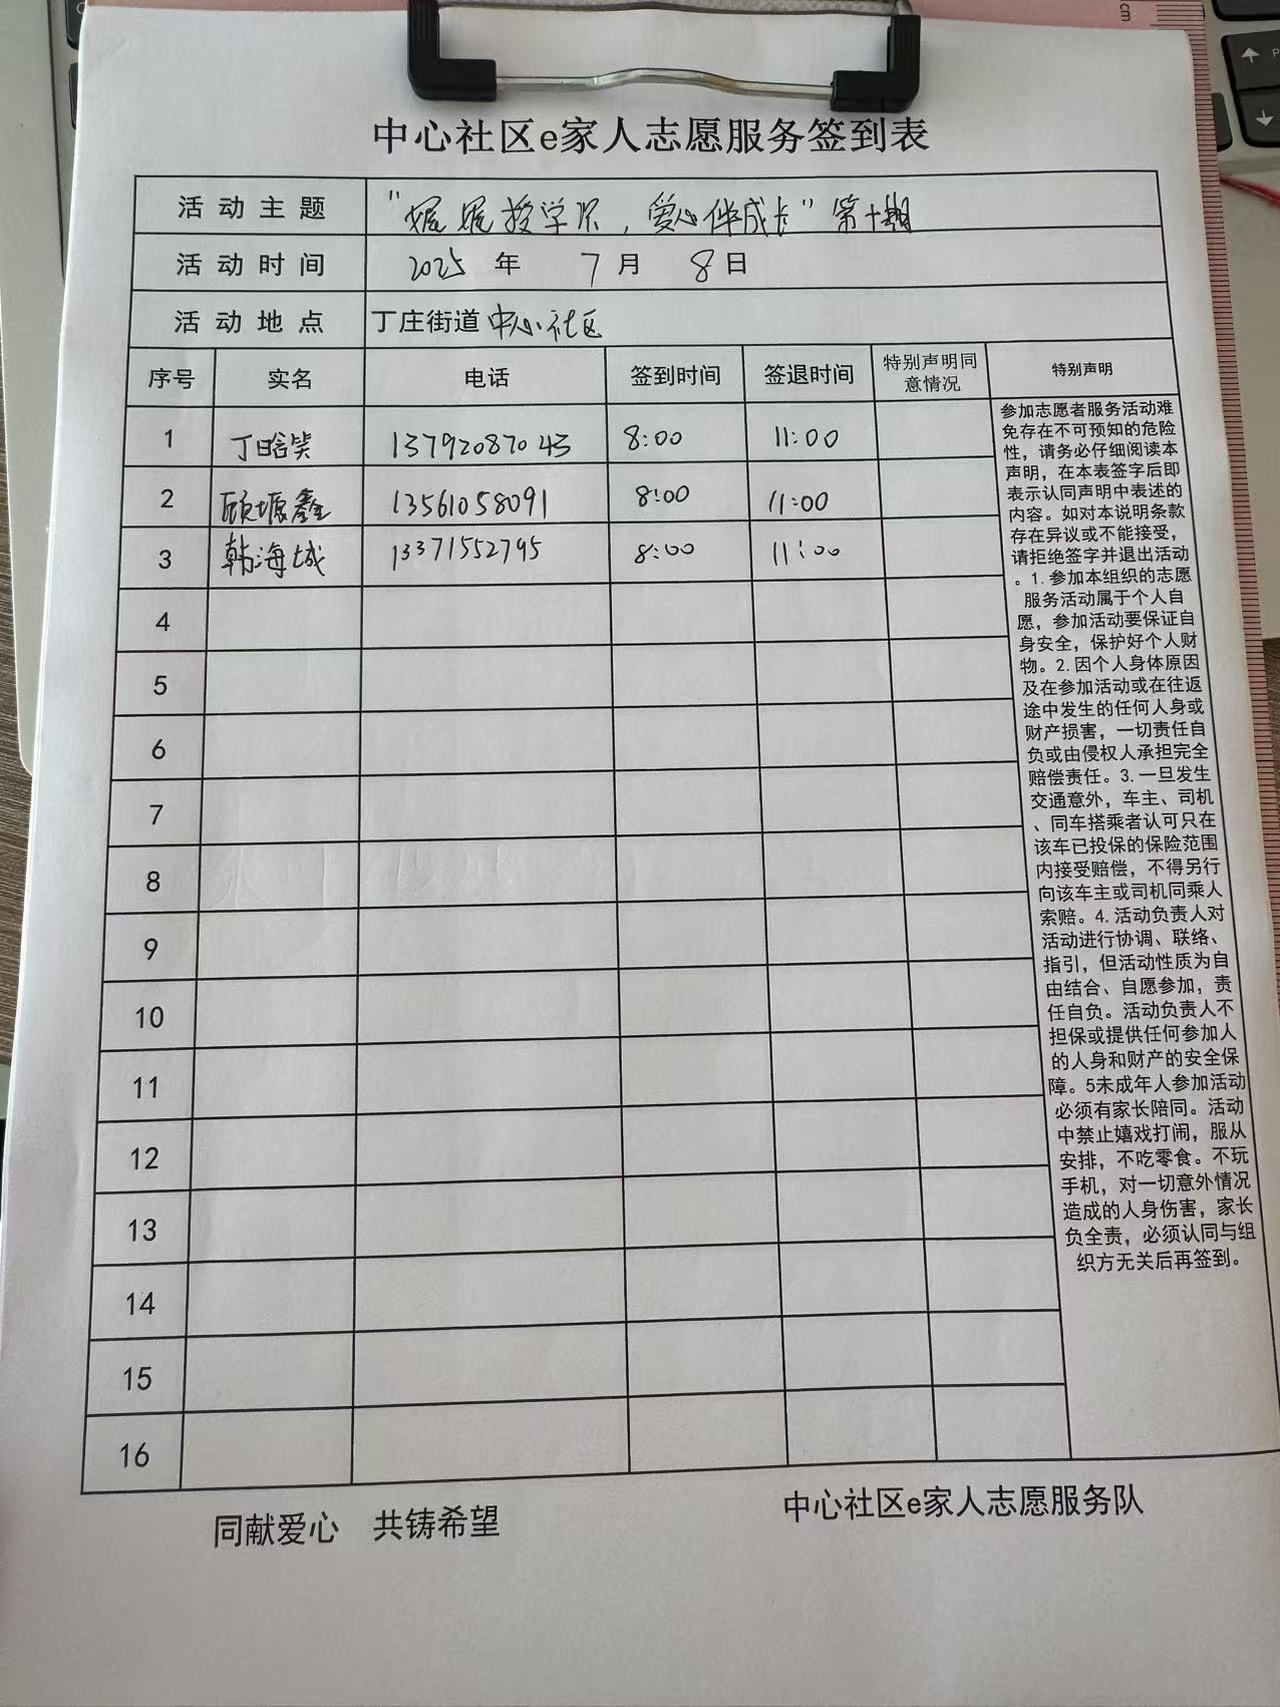 中心社区e家人志愿服务签到表
活动主题 "娓娓授学识，爱心伴成长"第十期
活动时间 2025 年 7 月 8 日
活动地点 丁庄街道中心社区
序号 实名 电话 签到时间 签退时间 特别声明同意情况 特别声明
1 丁晗笑 13792087043 8:00 11:00
2 顾塬鑫 13561058091 8:00 11:00
3 韩海城 13371552795 8:00 11:00
4
5
6
7
8
9
10
11
12
13
14
15
16
参加志愿者服务活动难
免存在不可预知的危险
性，请务必仔细阅读本
声明，在本表签字后即
表示认同声明中表述的
内容。如对本说明条款
存在异议或不能接受，
请拒绝签字并退出活动
。1.参加本组织的志愿
服务活动属于个人自
愿，参加活动要保证自
身安全，保护好个人财
物。2.因个人身体原因
及在参加活动或在往返
途中发生的任何人身或
财产损害，一切责任自
负或由侵权人承担完全
赔偿责任。3.一旦发生
交通意外，车主、司机
、同车搭乘者认可只在
该车已投保的保险范围
内接受赔偿，不得另行
向该车主或司机同乘人
索赔。4.活动负责人对
活动进行协调、联络、
指引，但活动性质为自
由结合、自愿参加，责
任自负。活动负责人不
担保或提供任何参加人
的人身和财产的安全保
障。5未成年人参加活动
必须有家长陪同。活动
中禁止嬉戏打闹，服从
安排，不吃零食。不玩
手机，对一切意外情况
造成的人身伤害，家长
负全责，必须认同与组
织方无关后再签到。
同献爱心 共铸希望
中心社区e家人志愿服务队
cm